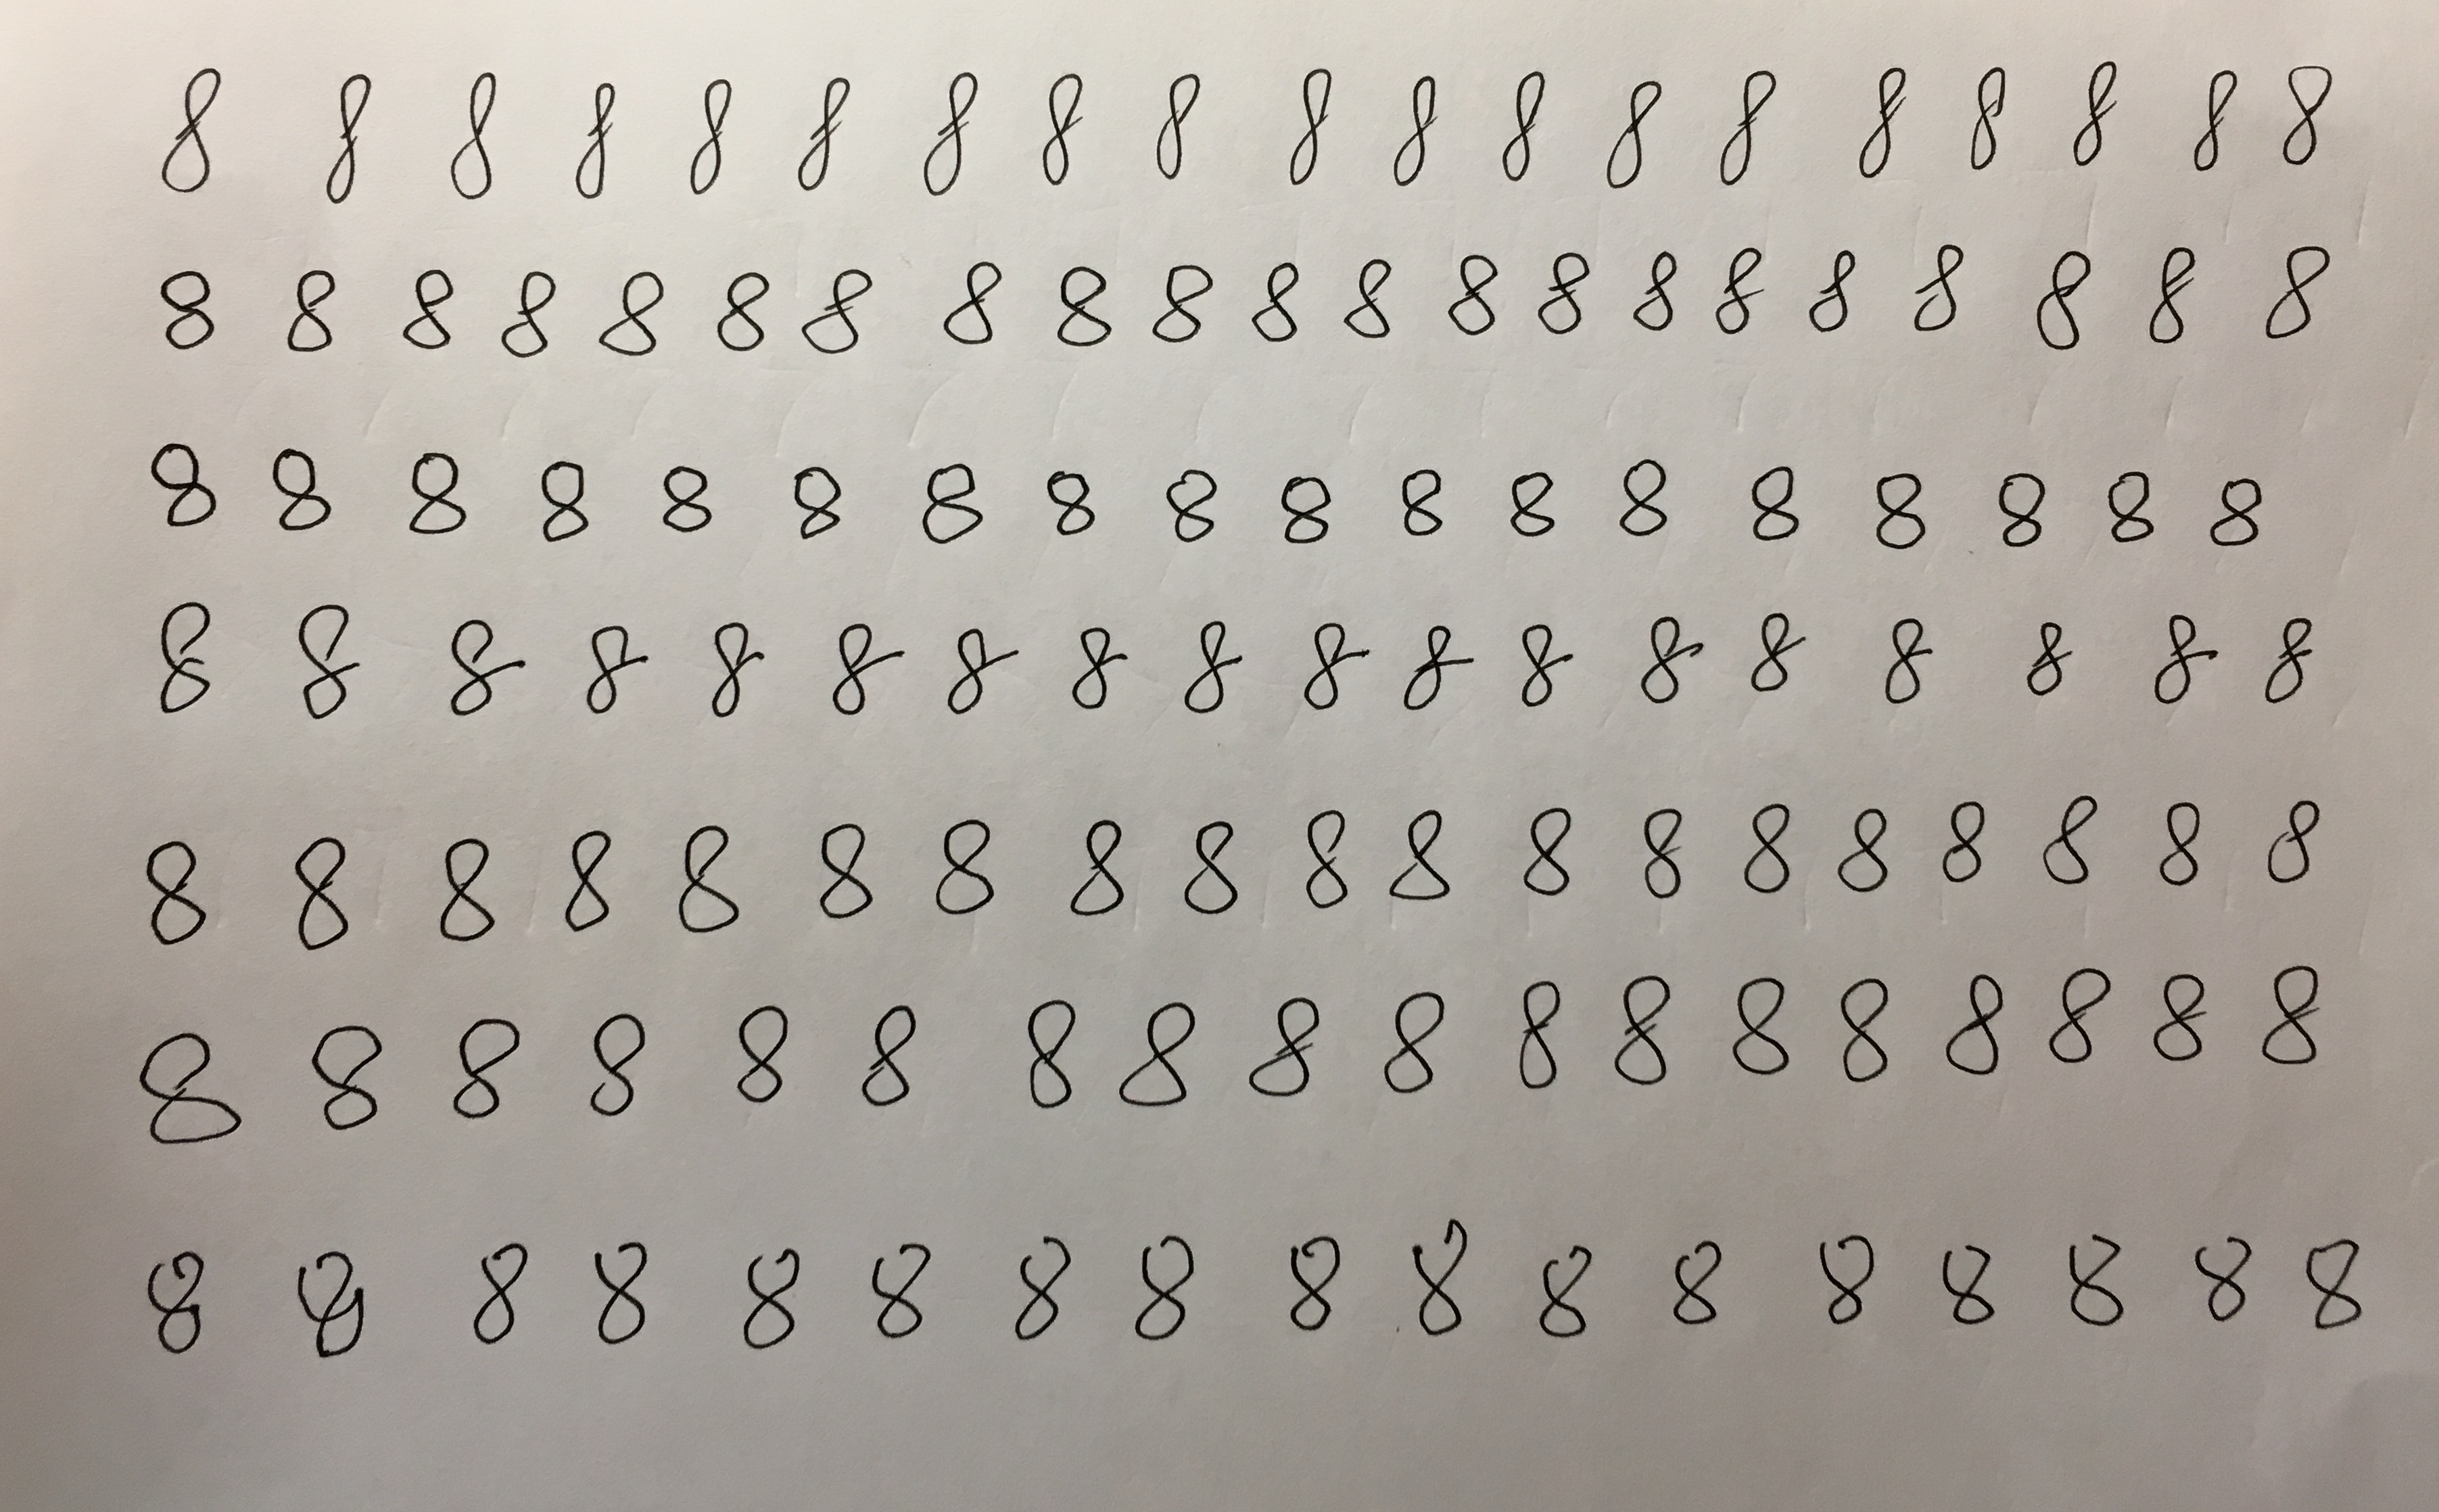 8 8 8 8 8 8 8 8 8 8 8 8 8 8 8 8 8 8 8
8 8 8 8 8 8 8 8 8 8 8 8 8 8 8 8 8 8 8 8 8
8 8 8 8 8 8 8 8 8 8 8 8 8 8 8 8 8 8
8 8 8 8 8 8 8 8 8 8 8 8 8 8 8 8 8 8
8 8 8 8 8 8 8 8 8 8 8 8 8 8 8 8 8 8 8
8 8 8 8 8 8 8 8 8 8 8 8 8 8 8 8 8 8
8 8 8 8 8 8 8 8 8 8 8 8 8 8 8 8 8